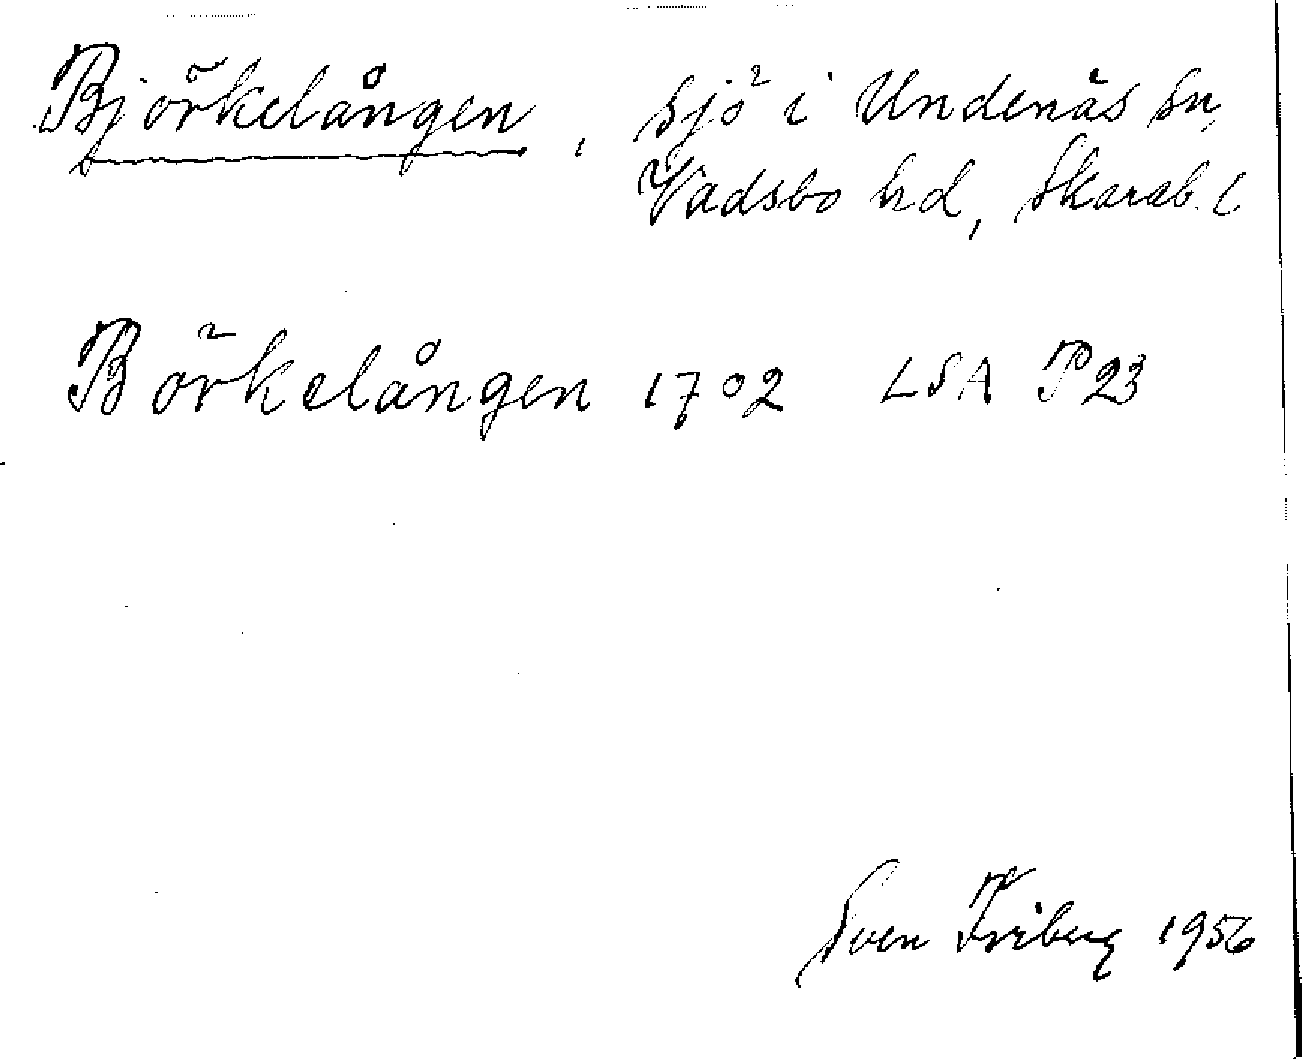 Björkelången, sjö i Undenäs sn,
Vadsbo hd, Skarab. l
Börkelången 1702 LSA P23
Sven Friberg 1956